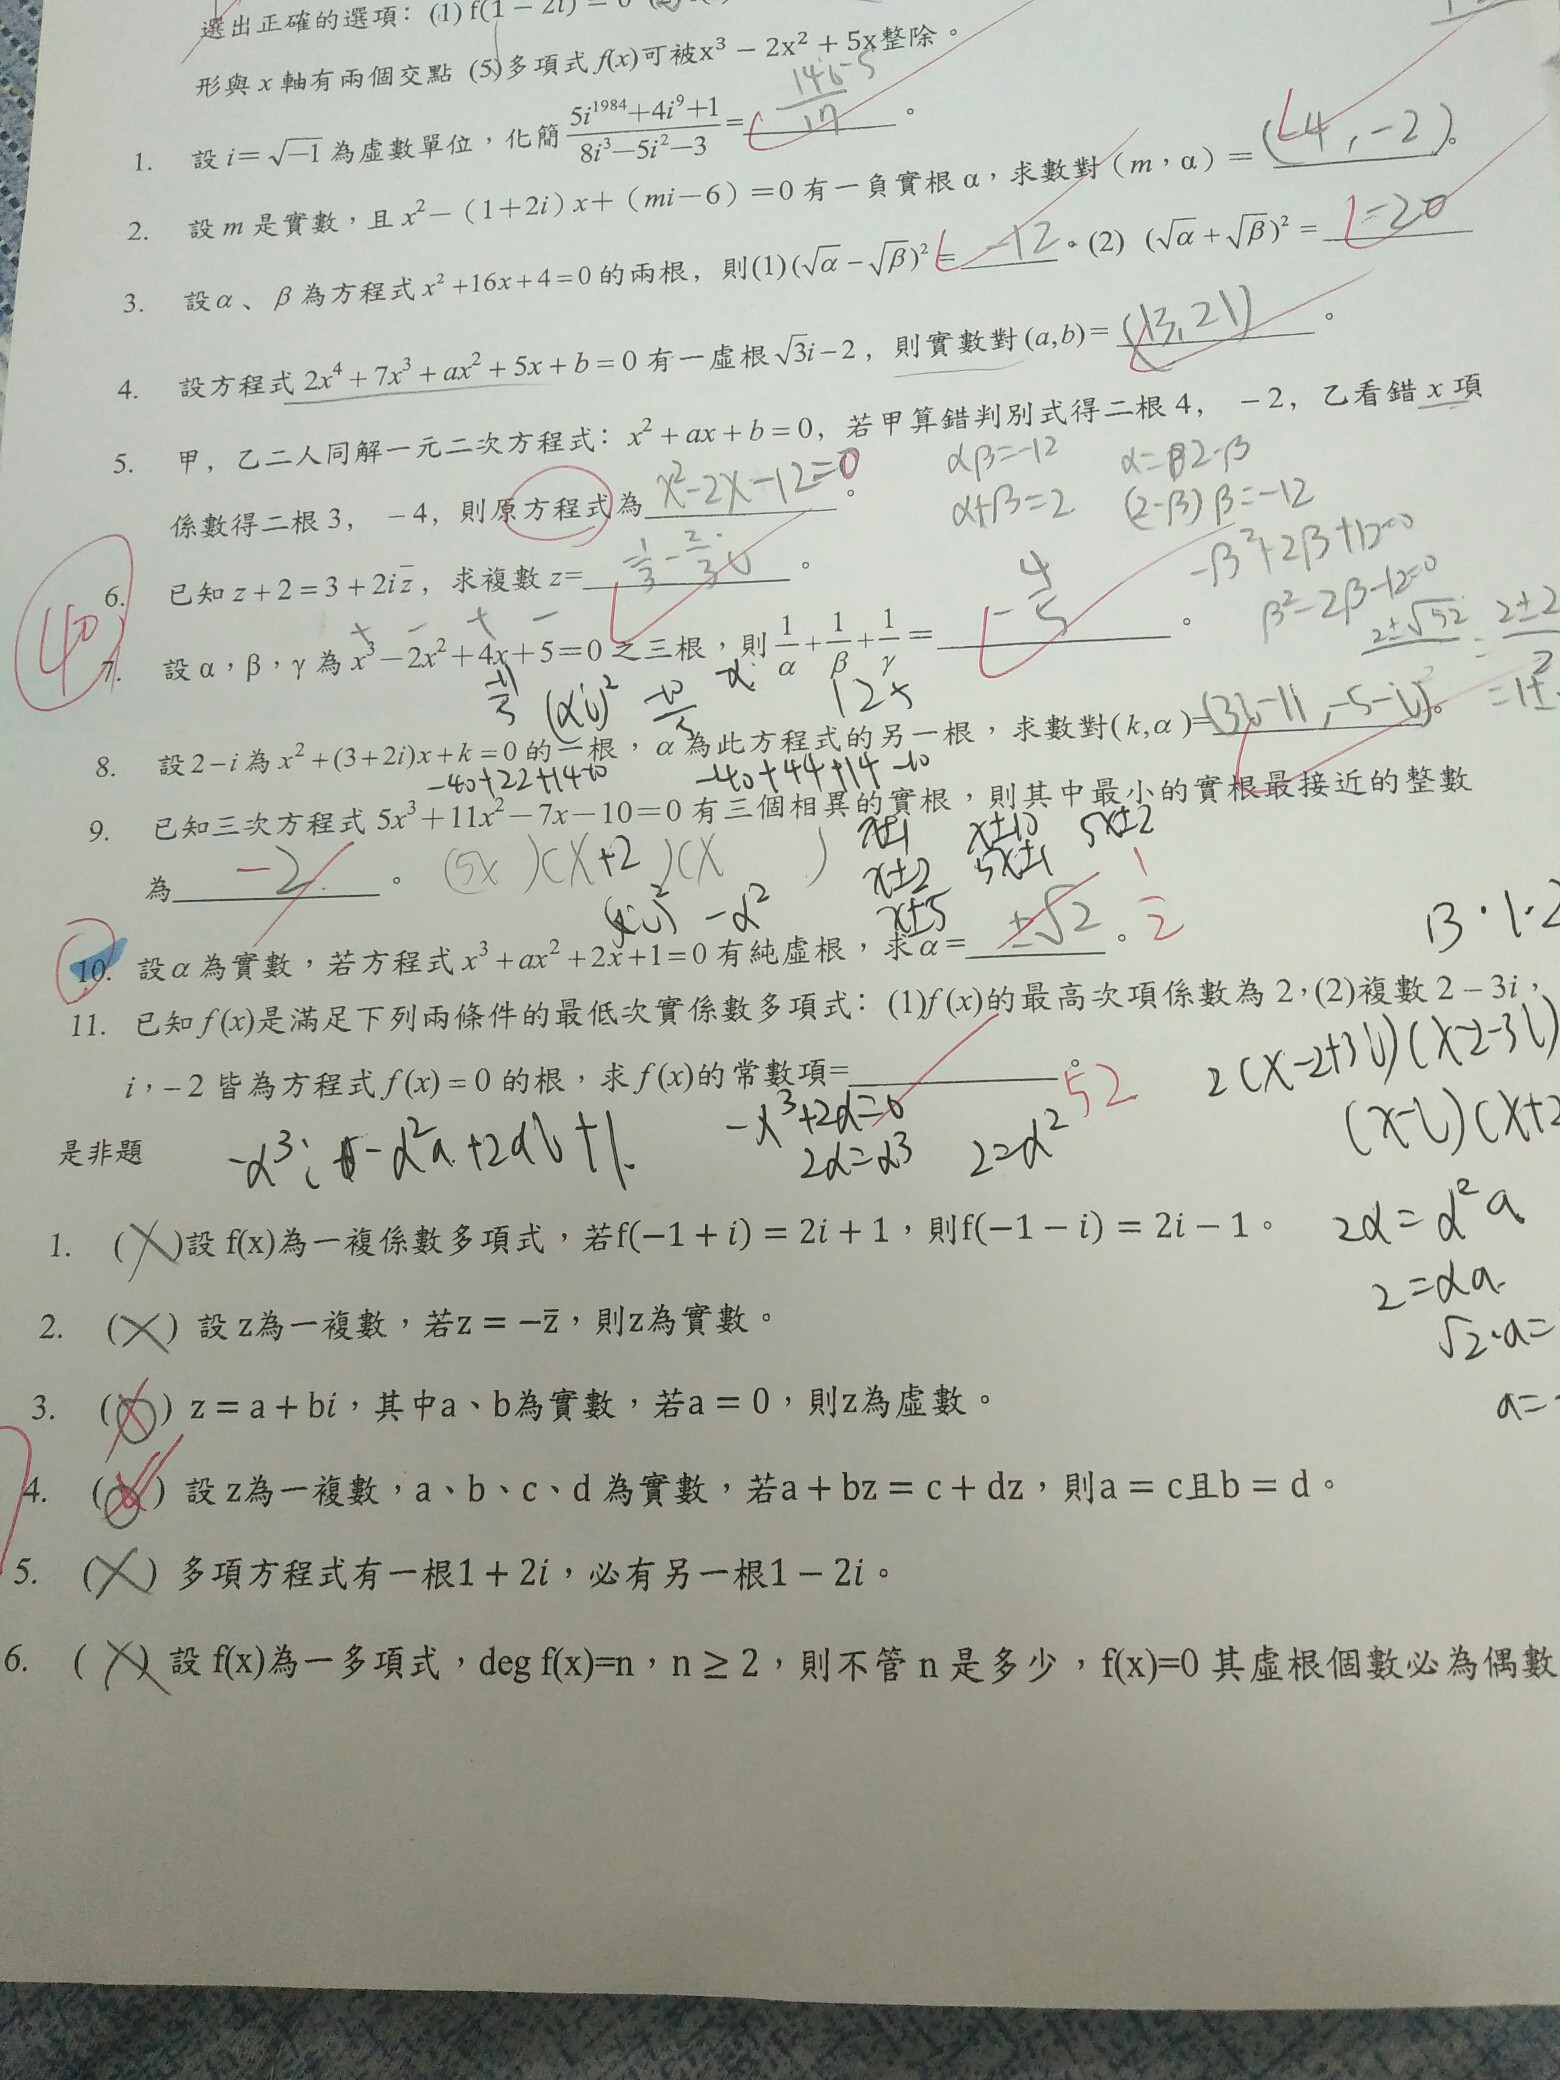 選出正確的選項：(1) f(1 − 2i) = 0
形與 x 軸有兩個交點 (5)多項式 f(x)可被x³ − 2x² + 5x整除。
1. 設 i= √−1 為虛數單位，化簡 (5i¹⁹⁸⁴+4i⁹+1)/(8i³−5i²−3) = (14i-5)/17 。
2. 設 m 是實數，且 x²−（1+2i）x+（mi−6）=0 有一負實根 α，求數對（m，α）= (-4, -2)。
3. 設α、β為方程式 x²+16x+4=0 的兩根，則(1)(√α−√β)²= -12 。(2) (√α+√β)²= -20
4. 設方程式 2x⁴+7x³+ax²+5x+b=0 有一虛根√3i−2，則實數對(a,b)= (13,21) 。
5. 甲，乙二人同解一元二次方程式：x²+ax+b=0，若甲算錯判別式得二根 4，−2，乙看錯 x 項
αβ=-12
係數得二根 3，−4，則原方程式為 x²-2x-12=0 。
α+β=2 (2-β)β=-12
-β²+2β+12=0
6. 已知 z+2=3+2iz̄，求複數 z= 。
β²-2β-12=0
40
7. 設 α，β，γ 為 x³−2x²+4x+5=0 之三根，則 1/α+1/β+1/γ= -4/5 。
8. 設2−i為 x²+(3+2i)x+k=0的一根，α為此方程式的另一根，求數對(k,α)=(3i-11, -5-i)。
-40+44+14-10
9. 已知三次方程式 5x³+11x²−7x−10=0 有三個相異的實根，則其中最小的實根最接近的整數
為 -2 。 (5x )(x+2)(x ) x±1 x±10 5x±2
x±2 5x±1
x±5
10. 設α為實數，若方程式 x³+ax²+2x+1=0 有純虛根，求α= ±√2 。 1/2
11. 已知 f(x)是滿足下列兩條件的最低次實係數多項式：(1)f(x)的最高次項係數為 2，(2)複數 2−3i，
i，−2 皆為方程式 f(x)=0 的根，求 f(x)的常數項= 。 52
2(x-2+3i)(x-2-3i)
(x-i)(x+2
2α=α³ 2=α²
是非題
1. (X)設 f(x)為一複係數多項式，若f(−1 + i) = 2i + 1，則f(−1 − i) = 2i − 1。
2α=α²a
2=αa
2. (X) 設 z為一複數，若z = −z̄，則z為實數。
√2·a=
3. (O) z = a + bi，其中a、b為實數，若a = 0，則z為虛數。
a=
4. (O) 設 z為一複數，a、b、c、d 為實數，若a + bz = c + dz，則a = c且b = d。
5. (X) 多項方程式有一根1 + 2i，必有另一根1 − 2i。
6. (X) 設 f(x)為一多項式，deg f(x)=n，n ≥ 2，則不管 n 是多少，f(x)=0 其虛根個數必為偶數